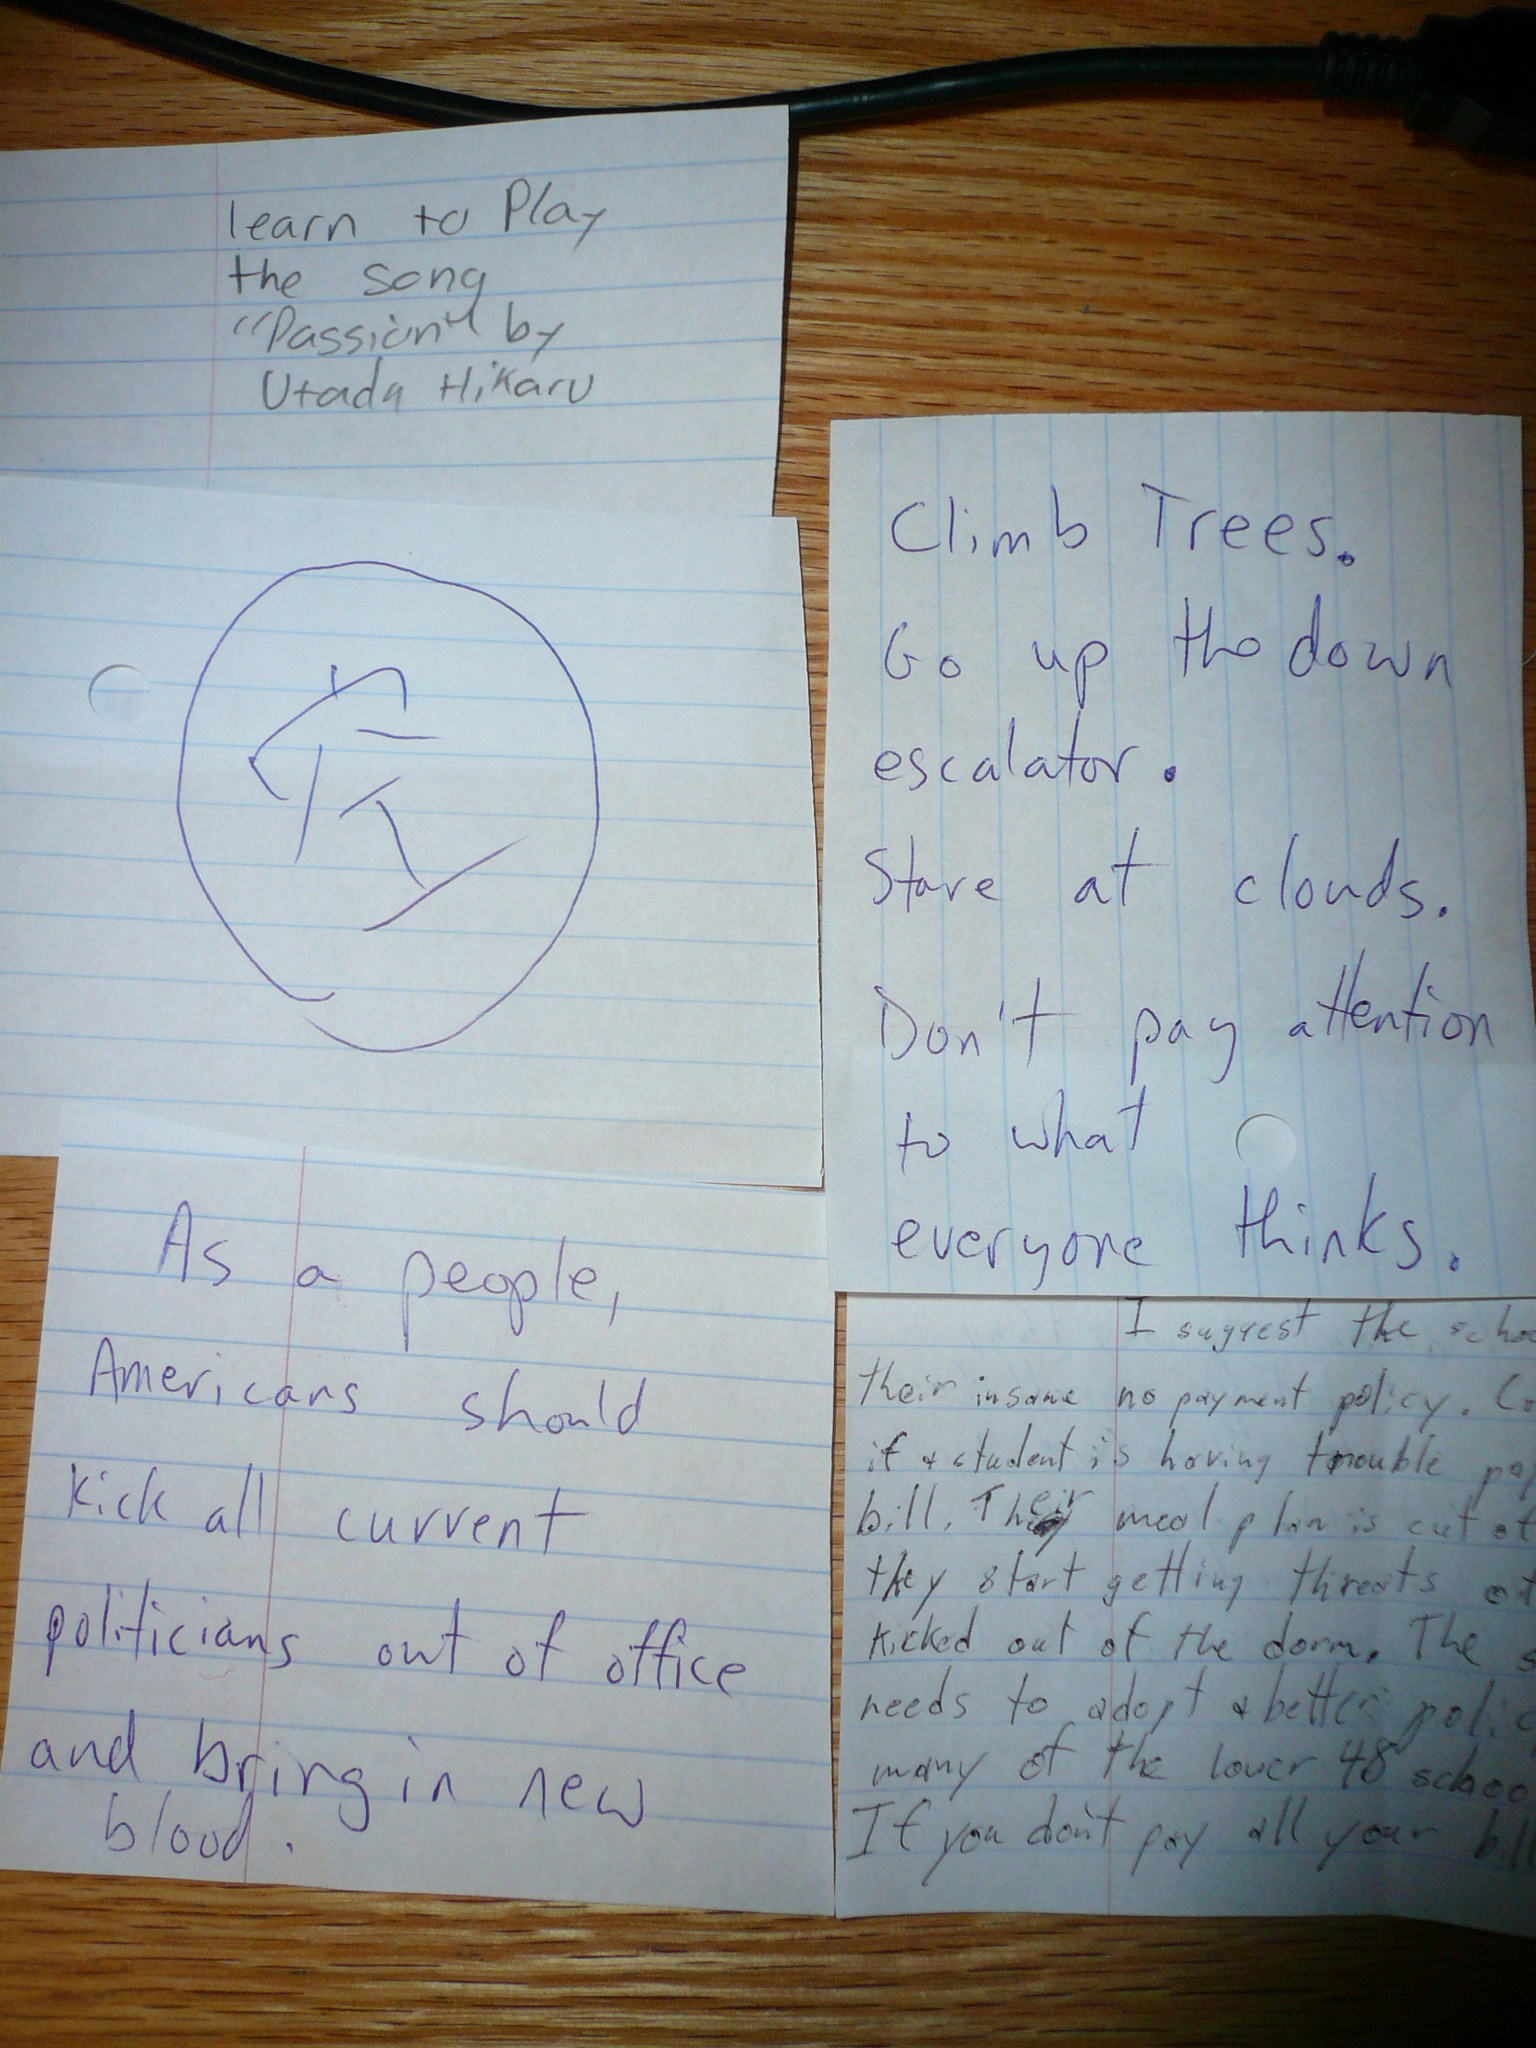 learn to Play
the song
"Passion" by
Utada Hikaru
Climb Trees.
Go up the down
escalator.
Stare at clouds.
Don't pay attention
to what
everyone thinks.
As a people,
Americans should
kick all current
politicians out of office
and bring in new
blood.
I suggest the
their insane no payment policy.
if a student is having trouble
bill. Their meal plan is cut
they start getting threats
kicked out of the dorm. The
needs to adopt a better
many of the lower 48
If you don't pay all your